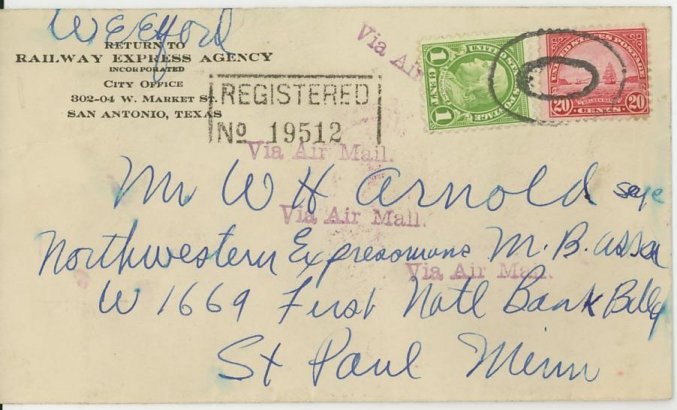 W E Efford
RETURN TO
RAILWAY EXPRESS AGENCY
INCORPORATED
CITY OFFICE
302-04 W. MARKET ST.
SAN ANTONIO, TEXAS
REGISTERED
No 19512
Via Air
UNITED STATES POSTAGE
1 CENT 1
UNITED STATES POSTAGE
20 CENTS 20
Via Air Mail.
Mr W H Arnold
Via Air Mail.
Northwestern Expressmans M. B. assn
Via Air Mail.
W 1669 First Natl Bank Bldg
St Paul Minn